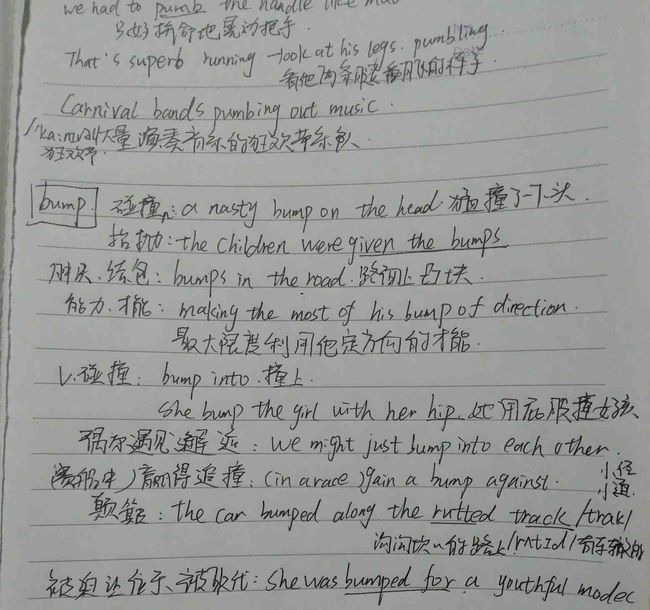 we had to pumb the handle like mad
只好拚命地晃动把手.
That's superb running -look at his legs. pumbling
看他两条腿
Carnival bands pumbing out music.
大量演奏音乐的狂欢节乐队.
狂欢节
bump. 碰撞n: a nasty bump on the head. 猛撞了一下头.
抬抛: the children were given the bumps
肿块.结包: bumps in the road. 路面上凸块.
能力.才能: making the most of his bump of direction.
最大限度利用他定方向的才能.
V.碰撞: bump into .撞上.
she bump the girl with her hip. 她用屁股撞女孩
偶尔遇见邂逅: we might just bump into each other.
(赛船中)赢得追撞: (in a race) gain a bump against. 小径
小道.
颠簸: the car bumped along the rutted track /trak/
沟沟坎坎的路上 /rʌtid/ 有车辙的
被迫让位于、被取代: she was bumped for a youthful model